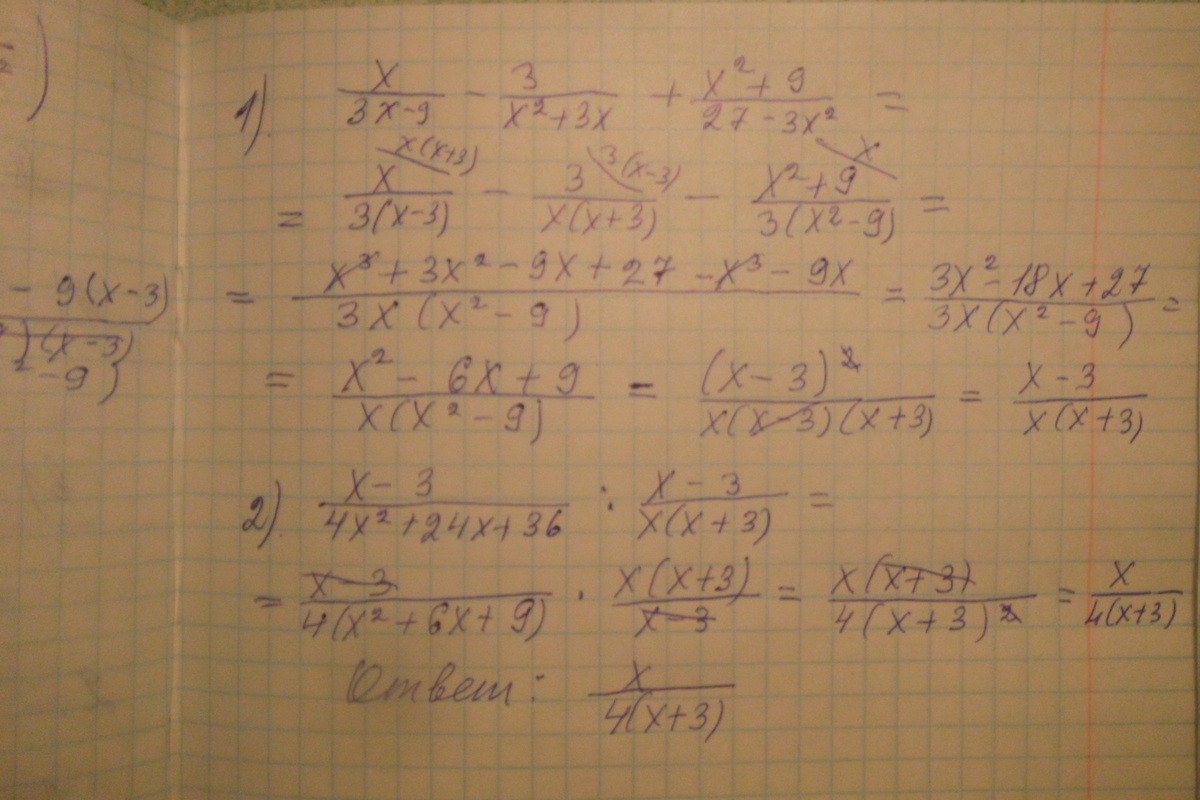 1). x/(3x-9) - 3/(x²+3x) + (x²+9)/(27-3x²) =
= x/(3(x-3)) \x(x+3) - 3/(x(x+3)) \3(x-3) - (x²+9)/(3(x²-9)) \x =
= (x³+3x²-9x+27-x³-9x)/(3x(x²-9)) = (3x²-18x+27)/(3x(x²-9)) =
= (x²-6x+9)/(x(x²-9)) = (x-3)²/(x(x-3)(x+3)) = (x-3)/(x(x+3))
2). (x-3)/(4x²+24x+36) : (x-3)/(x(x+3)) =
= (x-3)/(4(x²+6x+9)) · (x(x+3))/(x-3) = (x(x+3))/(4(x+3)²) = x/(4(x+3))
Ответ: x/(4(x+3))
- 9(x-3)
)(x-3)
²-9)